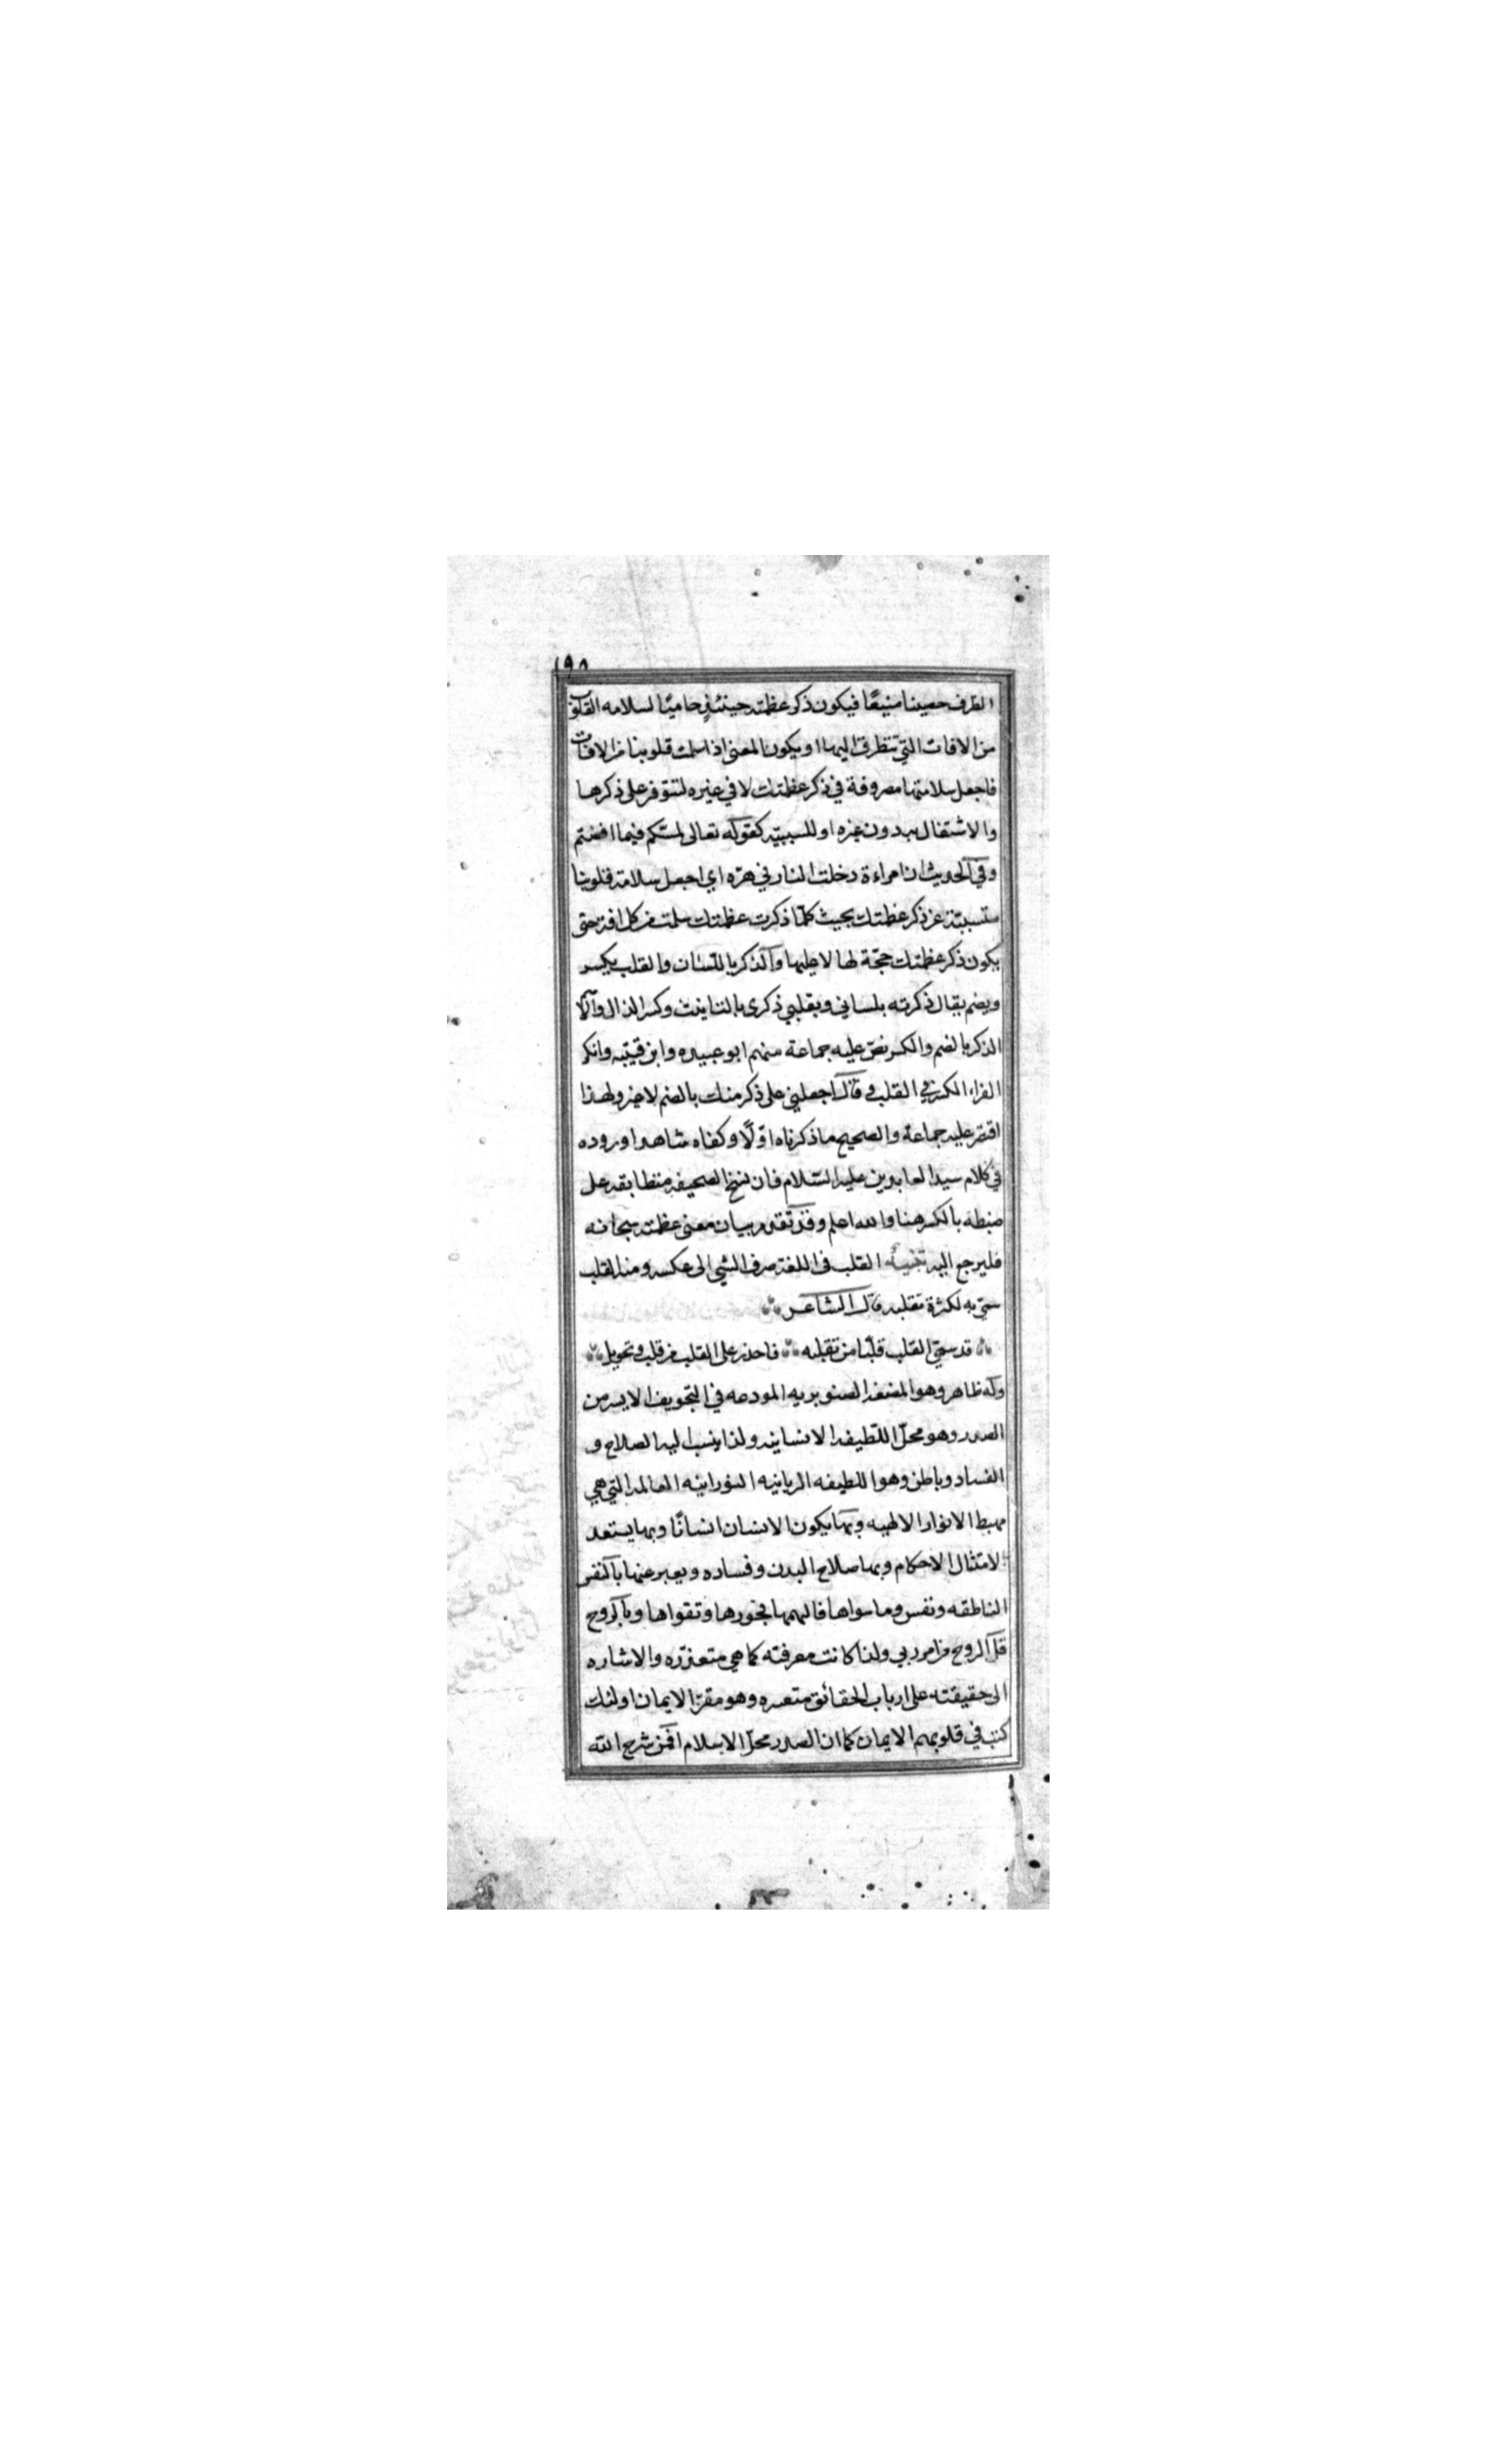 ١٩٥
الظرف حصينا منيعًا فيكون ذكر عظمته حينئذٍ حاميًا لسلامه القلوب
من الافات التي تتطرق اليها او يكون المعنى اذا سلمت قلوبنا من الافات
فاجعل سلامتها مصروفة في ذكر عظمتك لا في غيره لتتوفر على ذكرها
والاشتغال به دون غيره او للسببيّه كقوله تعالى لمسّكم فيما افضتم
وفي الحديث ان امراءة دخلت النار في هرّه اي اجعل سلامة قلوبنا
متسببّة عن ذكر عظمتك بحيث كلّما ذكرت عظمتك سلمت من كل افة حتى
يكون ذكر عظمتك حجّة لها لا عليها والذكر باللّسان والقلب يكسر
ويضم يقال ذكرته بلساني وبقلبي ذكرى بالتانيث وكسر الذال والا
الذكر بالضم والكسر نصّ عليه جماعة منهم ابو عبيده وابن قتيبه وانكر
الفراء الكسر في القلب وقال اجعلني على ذكر منك بالضم لا غير ولهذا
اقتصر عليه جماعة والصحيح ما ذكرناه اوّلًا وكفاه شاهدا وروده
في كلام سيد العابدين عليه السّلام فان نسخ الصحيفه متطابقه على
ضبطه بالكسر هنا والله اعلم وقد تقدم بيان معنى عظمته سبحانه
فليرجع اليه تنبيه القلب في اللغة صرف الشي الى عكسه ومنه القلب
سمّي به لكثرة تقلبه قال الشاعر
قد سمّي القلب قلبًا من تقلبه فاحذر على القلب من قلب وتحويل
وله ظاهر وهو المضغه الصنوبريه المودعه في التجويف الايسر من
الصدر وهو محلّ اللّطيفه الانسانيه ولذا ينسب اليه الصلاح و
الفساد وباطن وهو اللطيفه الربانيه النورانيه العالمه التي هي
مهبط الانوار الالهيه وبها يكون الانسان انسانًا وبها يستعد
لامتثال الاحكام وبها صلاح البدن وفساده ويعبر عنها بالنفس
الناطقه ونفس وما سواها فالهمها فجورها وتقواها وبالروح
قل الروح من امر ربي ولذا كانت معرفته كما هي متعذّره والاشاره
الى حقيقته على ارباب الحقائق متعسره وهو مقرّ الايمان اولئك
كتب في قلوبهم الايمان كما ان الصدر محلّ الاسلام افمن شرح الله